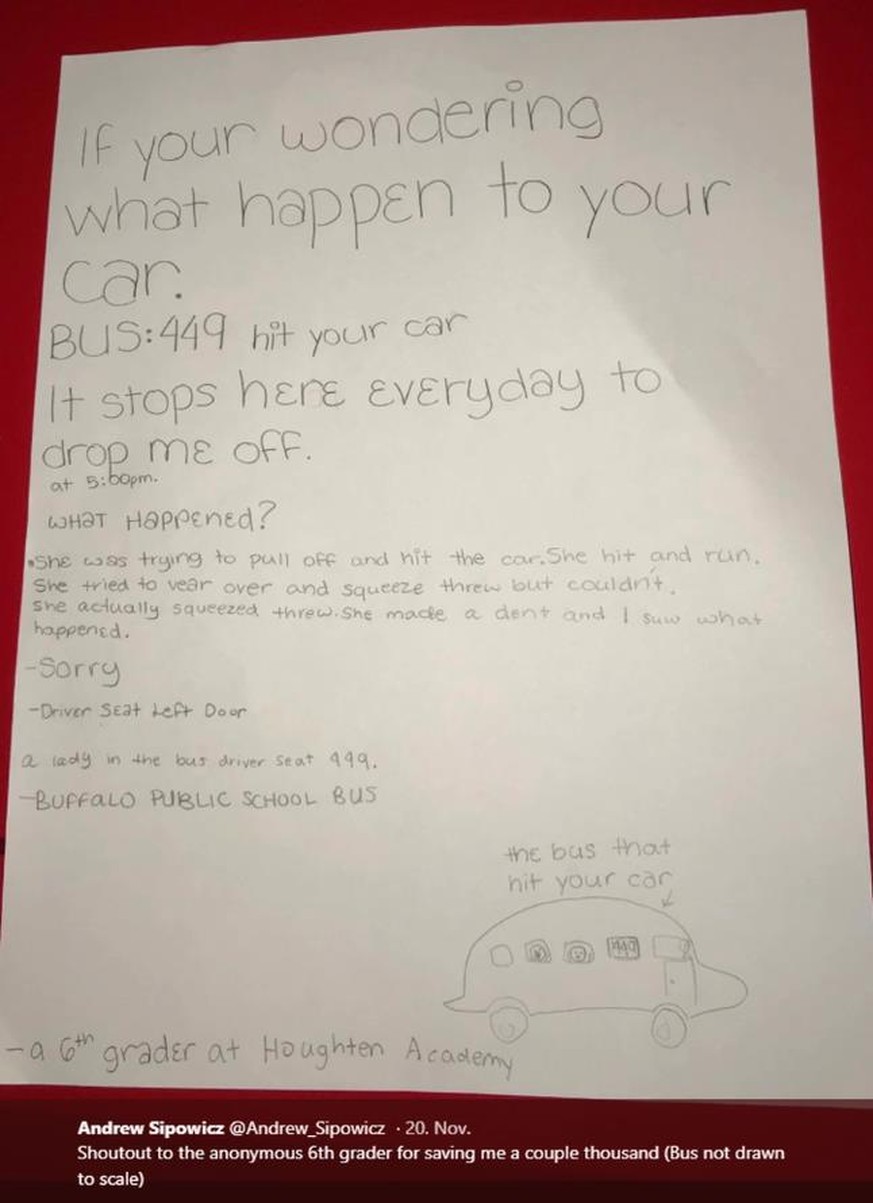 If your wondering
what happen to your
car.
BUS:449 hit your car
It stops here everyday to
drop me off.
at 5:00pm.
WHAT Happened?
•She was trying to pull off and hit the car.She hit and run.
She tried to vear over and squeeze threw but couldn't.
she actually squeezed threw.She made a dent and I suw what
happened.
-Sorry
-Driver Seat Left Door
a lady in the bus driver seat 449.
-BUFFalO PUBLIC SCHOOL BUS
the bus that
hit your car
449
-a 6th grader at Houghten Academy
Andrew Sipowicz @Andrew_Sipowicz · 20. Nov.
Shoutout to the anonymous 6th grader for saving me a couple thousand (Bus not drawn
to scale)